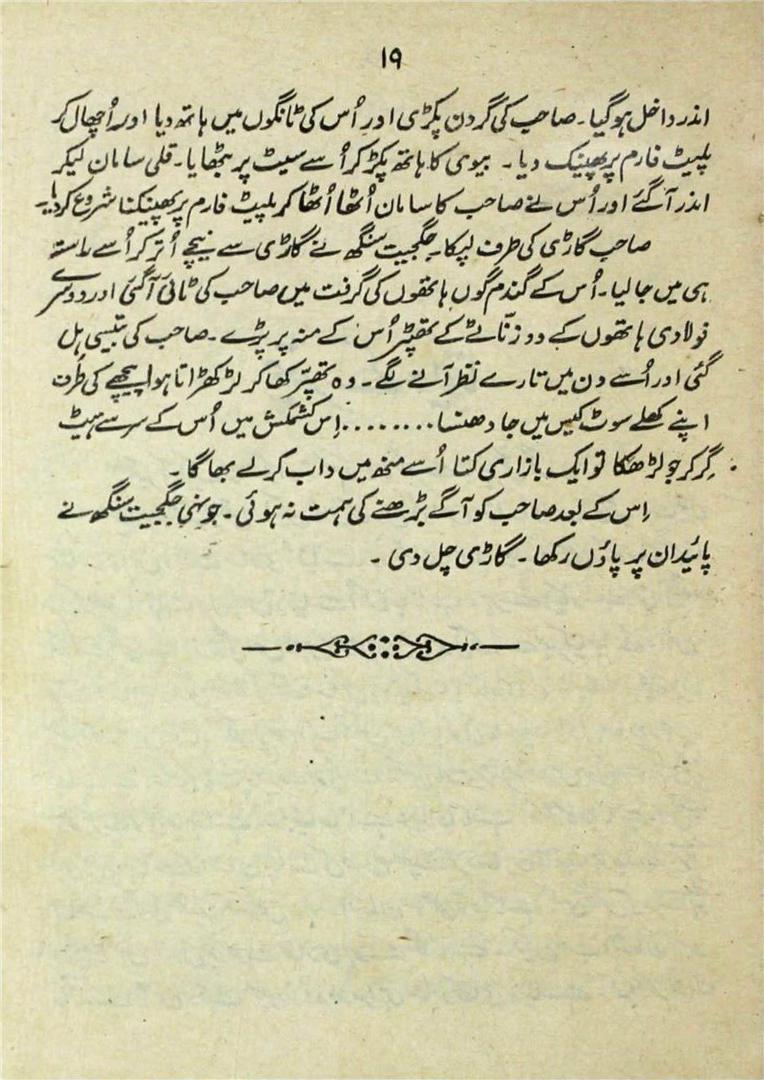 ۱۹
اندر داخل ہوگیا۔ صاحب کی گردن پکڑی اور اُس کی ٹانگوں میں ہاتھ دیا اور اُچھال کر
پلیٹ فارم پر پھینک دیا۔ بیوی کا ہاتھ پکڑ کر اُسے سیٹ پر بٹھایا۔ قلی سامان لیکر
اندر آگئے اور اُس نے صاحب کا سامان اُٹھا اُٹھا کر پلیٹ فارم پر پھینکنا شروع کردیا۔
صاحب گاڑی کی طرف لپکا۔ جگجیت سنگھ نے گاڑی سے نیچے اُتر کر اُسے راستہ
ہی میں جا لیا۔ اُس کے گندم گوں ہاتھوں کی گرفت میں صاحب کی ٹائی آگئی اور دوسرے
فولادی ہاتھوں کے دو زنّاٹے کے تھپٹر اُس کے منہ پر پڑے۔ صاحب کی بتیسی ہل
گئی اور اُسے دن میں تارے نظر آنے لگے۔ وہ تھپّر کھا کر لڑکھڑاتا ہوا پیچھے کی طرف
اپنے کھلے سوٹ کیس میں جا دھنسا........ اِس کشمکش میں اُس کے سر سے ہیٹ
گِر کر جو لڑھکا تو ایک بازاری کتا اُسے منھ میں داب کر لے بھاگا۔
اِس کے بعد صاحب کو آگے بڑھنے کی ہمت نہ ہوئی۔ جونہی جگجیت سنگھ نے
پائیدان پر پاؤں رکھا۔ گاڑی چل دی۔